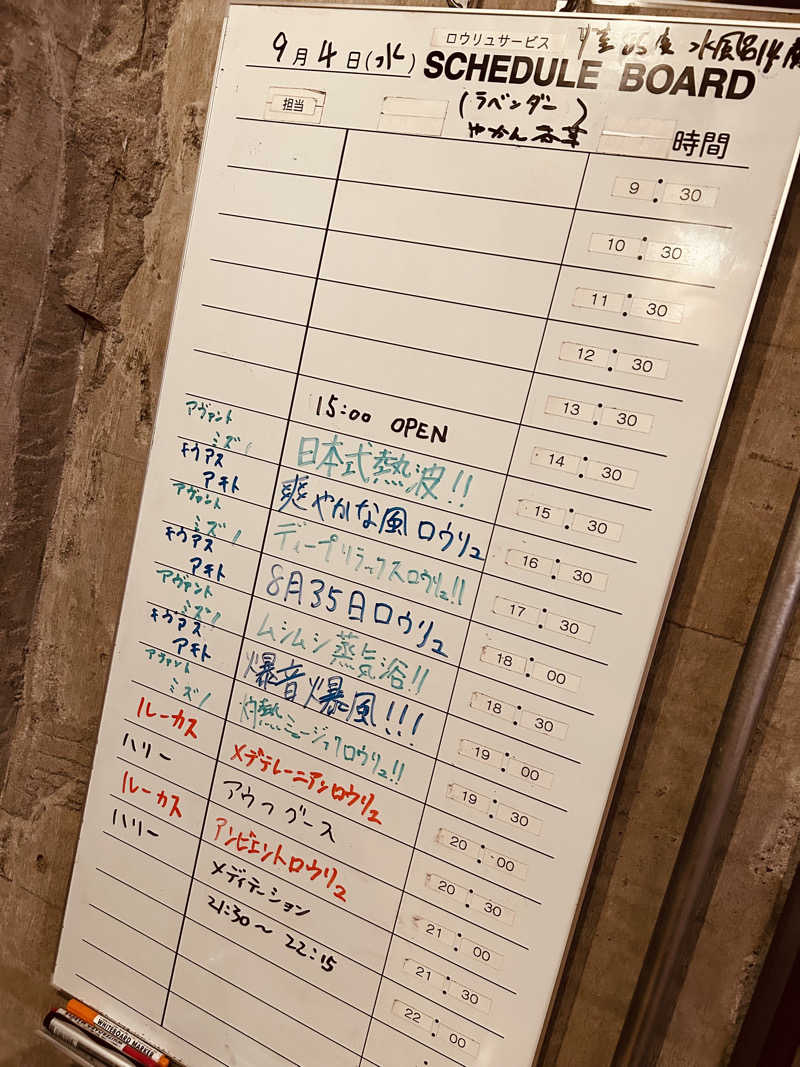 9月4日(水)
ロウリュサービス
SCHEDULE BOARD
担当
(ラベンダー)
やかん 香草
時間
9:30
10:30
11:30
12:30
13:30
15:00 OPEN 14:30
アヴァント ミズノ 日本式熱波!! 15:30
キウアス アキト 爽やかな風ロウリュ 16:30
アヴァント ミズノ ディープリラックスロウリュ!! 17:30
キウアス アキト 8月35日ロウリュ 18:00
アヴァント ミズノ ムシムシ蒸気浴!! 18:30
キウアス アキト 爆音爆風!!! 19:00
アヴァント ミズノ 灼熱ミュージックロウリュ!! 19:30
ルーカス メデテレーニアンロウリュ 20:00
ハリー アウフグース 20:30
ルーカス アンビエントロウリュ 21:00
ハリー メディテーション 21:30
21:30〜22:15 22:00
WHITEBOARD MARKER